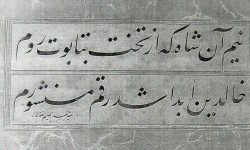 نیم آن شاه که از تخت بتابوت روم
خالدین ابدا شد رقم منشورم